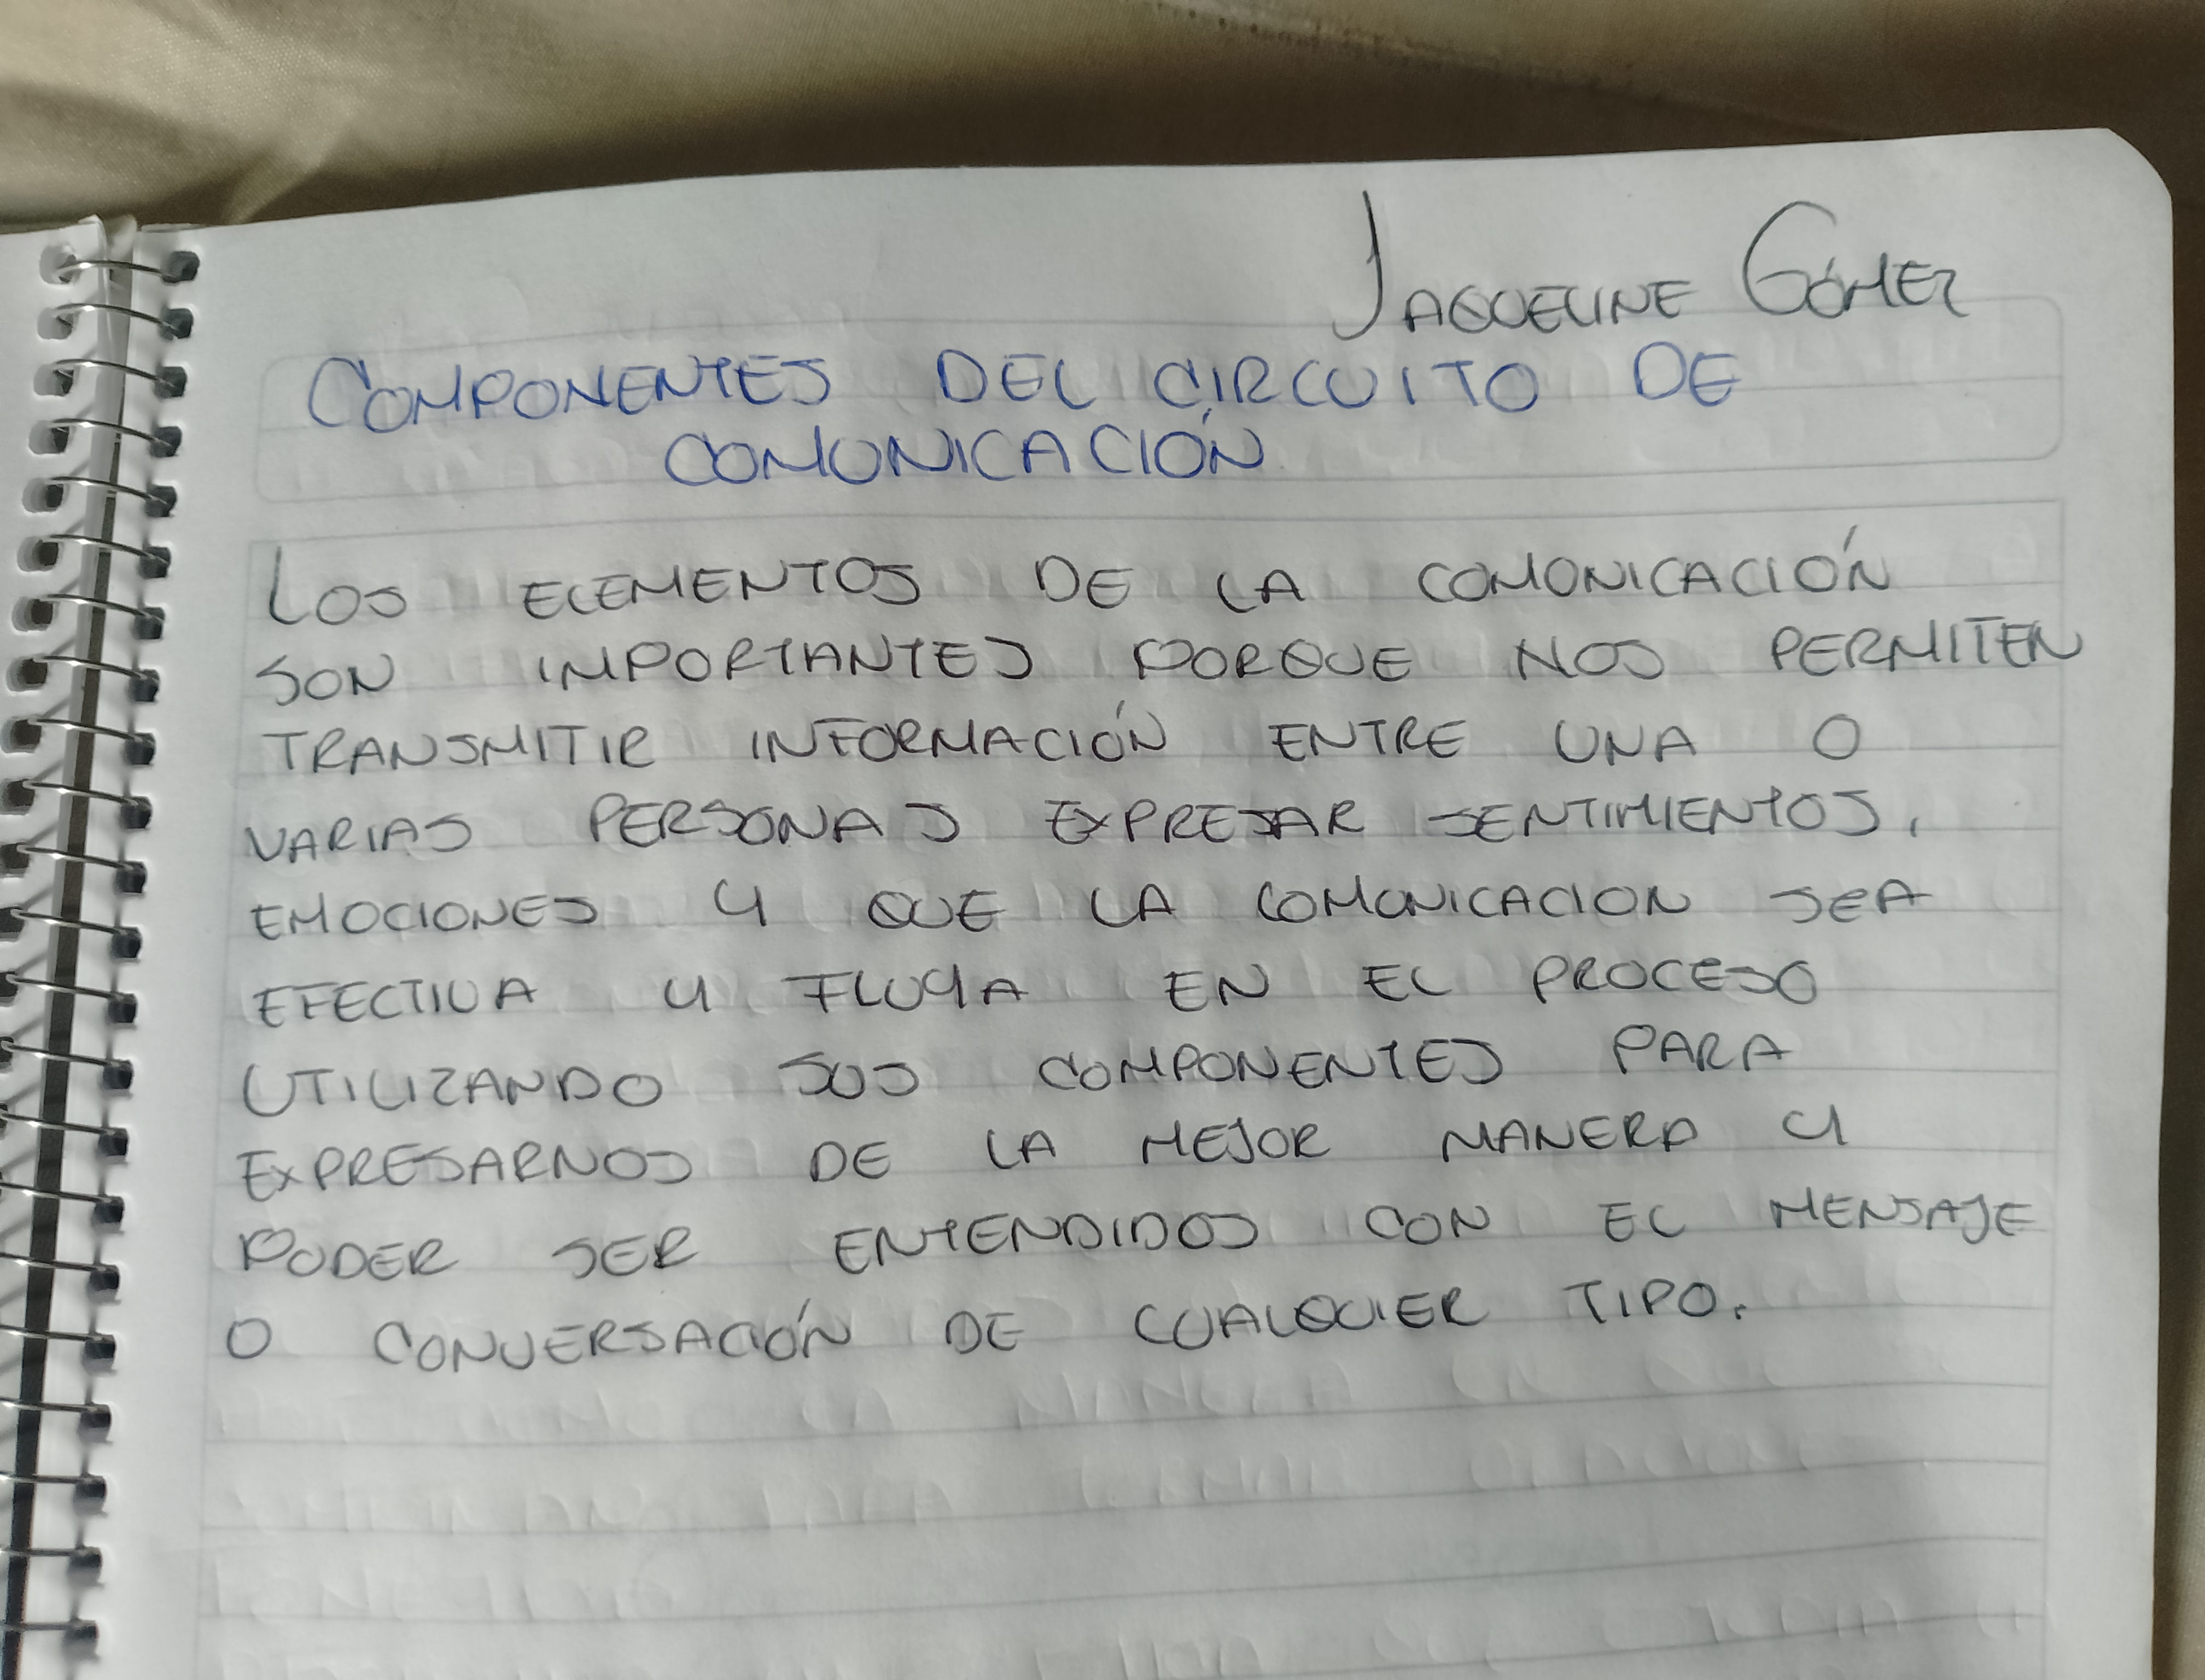 JAQUELINE GÓMEZ
COMPONENTES DEL CIRCUITO DE
COMUNICACIÓN
LOS ELEMENTOS DE LA COMUNICACIÓN
SON IMPORTANTES PORQUE NOS PERMITEN
TRANSMITIR INFORMACIÓN ENTRE UNA O
VARIAS PERSONAS EXPRESAR SENTIMIENTOS,
EMOCIONES Y QUE LA COMUNICACION SEA
EFECTIVA Y FLUYA EN EL PROCESO
UTILIZANDO SUS COMPONENTES PARA
EXPRESARNOS DE LA MEJOR MANERA Y
PODER SER ENTENDIDOS CON EL MENSAJE
O CONVERSACIÓN DE CUALQUIER TIPO.